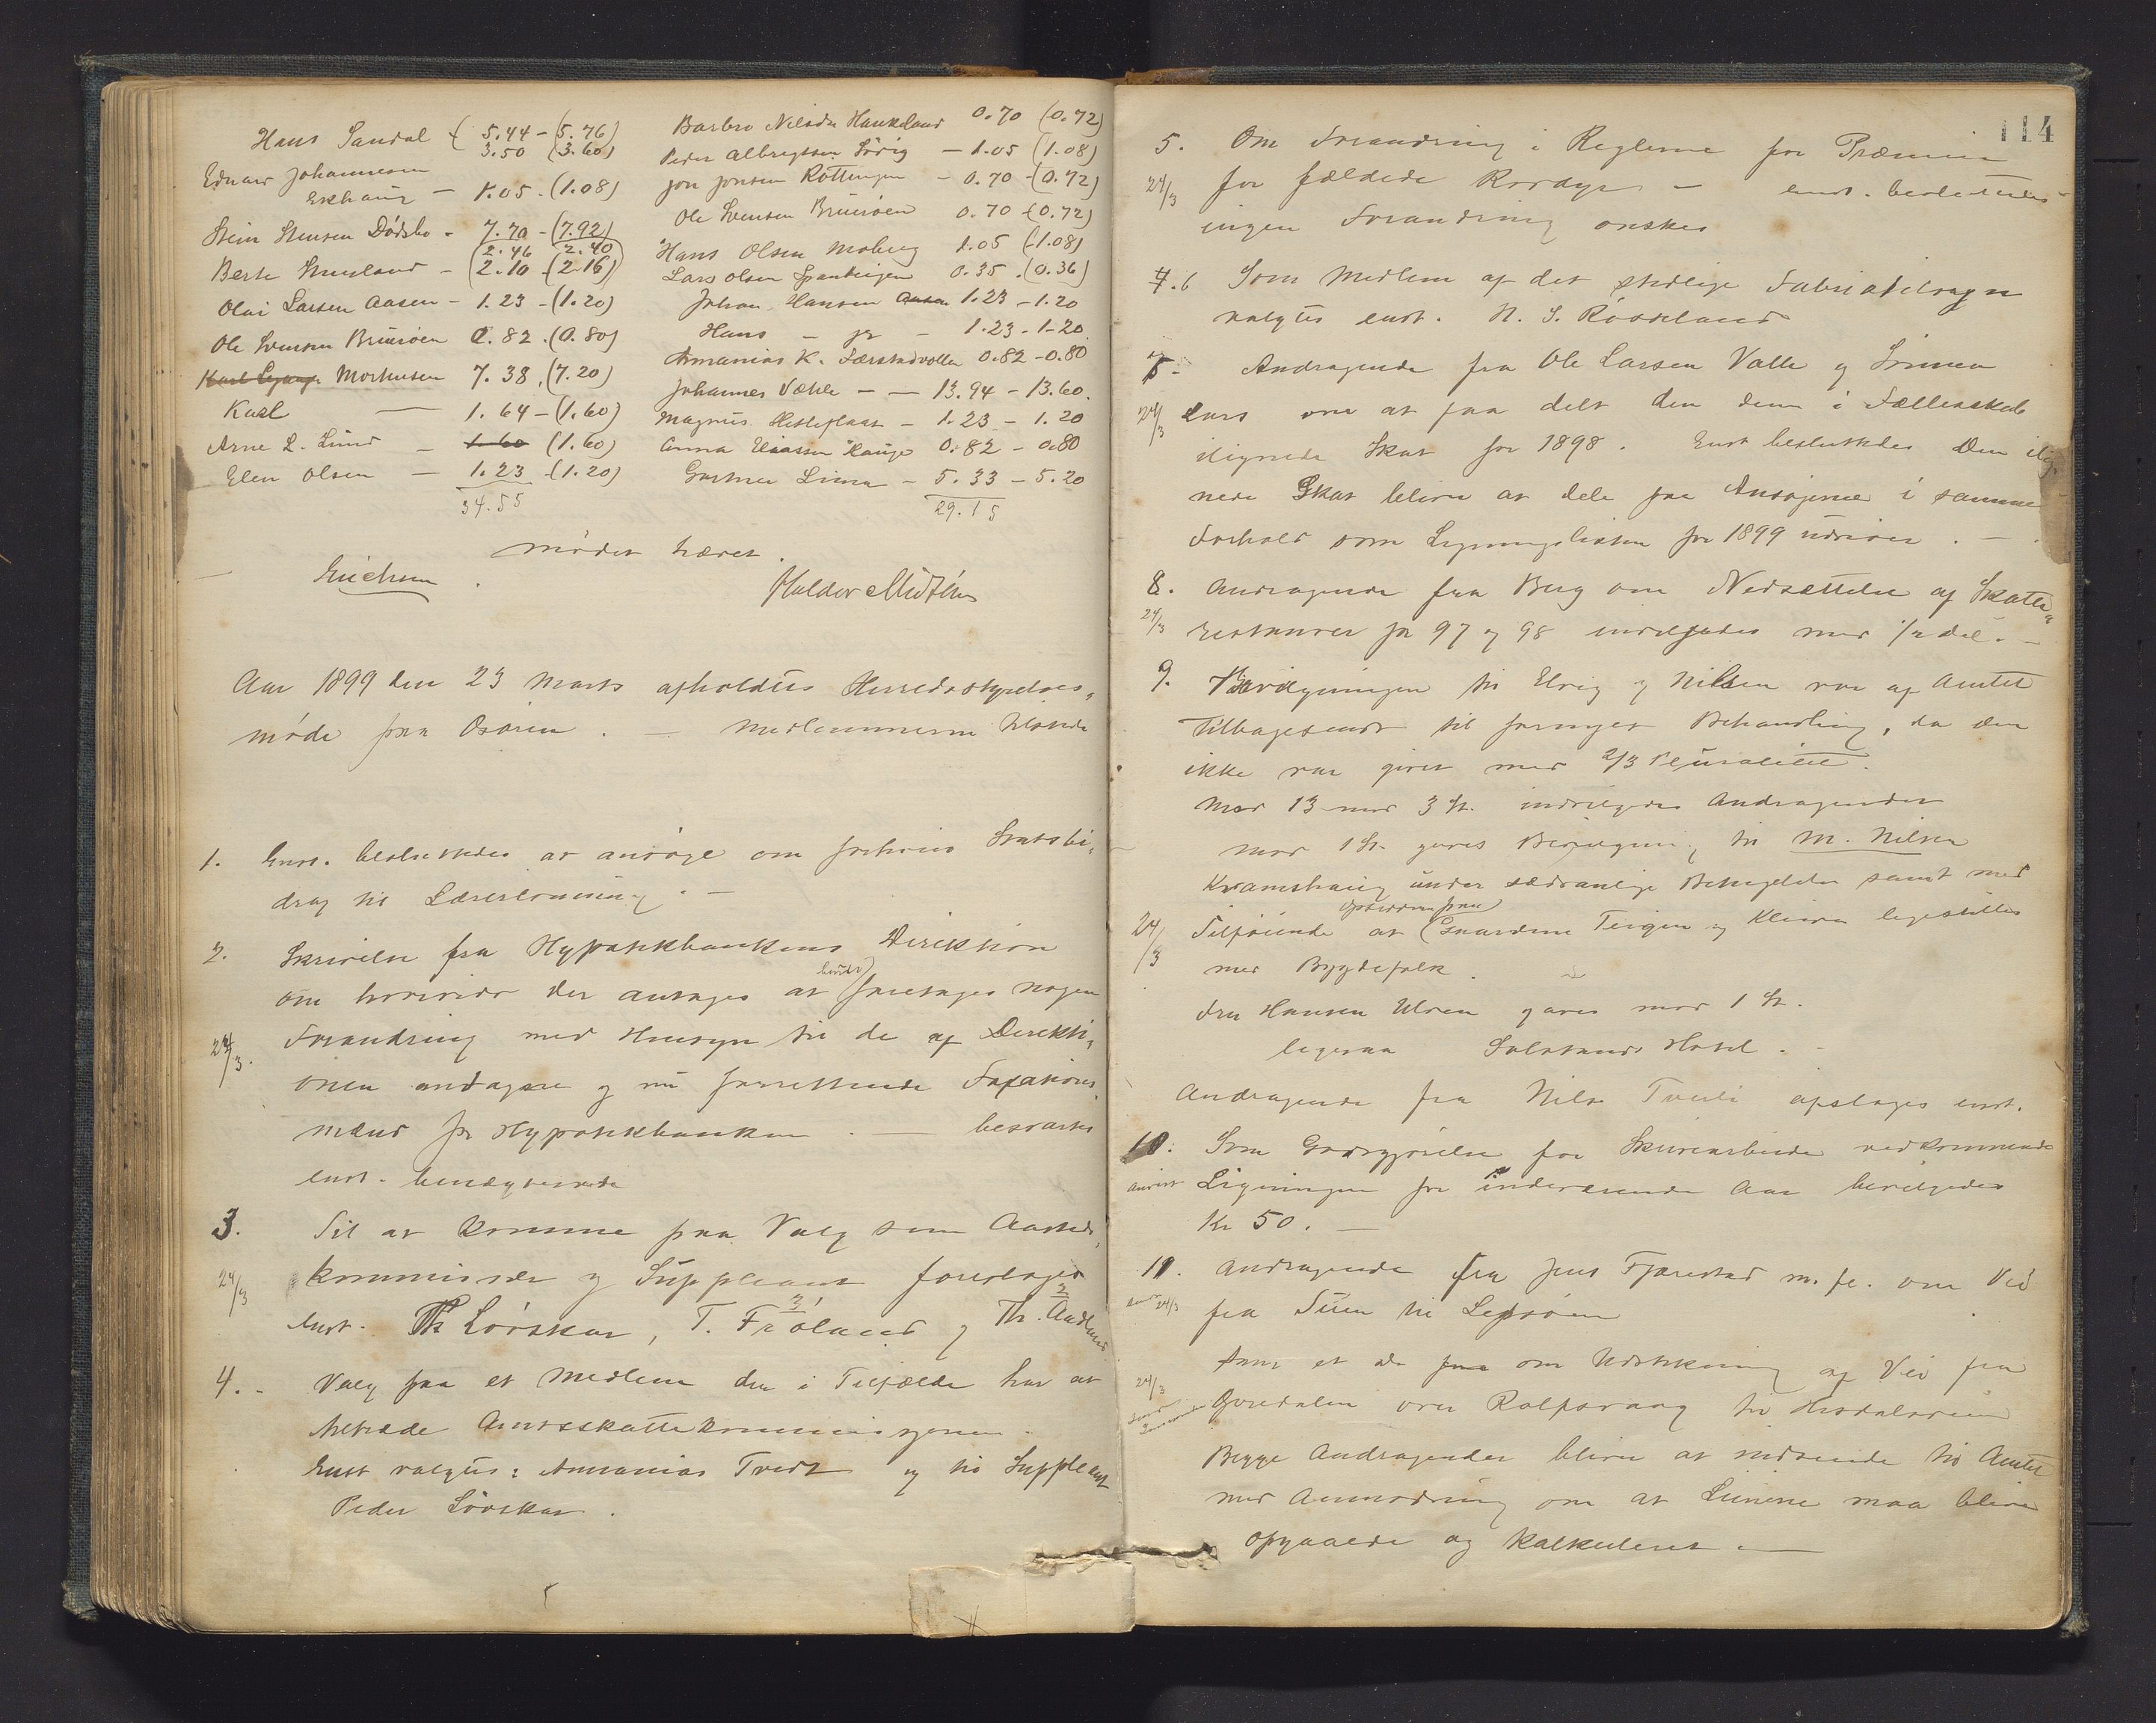 Hans Sandal ( 5.44 - (5.76)
3.50 (3.60)
Edvard Johannessen
Eskhaug - 1.05 - (1.08)
Stein Stensen Dødsbo - 7.70 - (7.92)
(2.46 2.40)
Berte - (2.10 - (2.16)
Olai Larsen Aasen - 1.23 - (1.20)
Ole Svensen Bruerøen 0.82 - (0.80)
Morkusen 7.38. (7.20)
Karl — 1.64 - (1.60)
Arne L. Lund - 1.60 (1.60)
Elen Olsen — 1.23 - (1.20)
34.55
Barbro Nilsdtr Haukeland 0.70 (0.72)
Peder Albregtsen Sörvig - 1.05 (1.08)
Jon Jonsen Röttingen - 0.70 - (0.72)
Ole Svensen Bruerøen 0.70 - (0.72)
Hans Olsen Moberg 1.05 (1.08)
Lars Olsen 0.35. (0.36)
Johan Hansen Aasen 1.23 - 1.20
Hans — jr — 1.23 - 1.20
Annanias K. 0.82 - 0.80
Johannes Væhle — — 13.94 - 13.60.
Magnus - 1.23 - 1.20
Anna Eliassen Hauge 0.82 - 0.80
Gartner Lima - 5.33 - 5.20
29.15
Mødet hævet.
Erichsen. Haldor Midthus
Aar 1899 den 23 Marts afholdtes Herredsstyrelses-
møde paa Osøren. — Medlemmerne tilstede
1. Enst. besluttedes at ansøge om forhøiet Statsbi-
drag til Lærerlønning. —
2. Skrivelse fra Hypothekbankens Direktion
om hvorvidt der antages at burde foretages nogen
24/3. Forandring med Hensyn til de af Direkti-
onen antagne og nu fungerende Taxations-
mænd for Hypothekbanken. — besvartes
enst. benægtende
3. Til at komme paa Valg som Aasteds-
24/3 kommissær og Suppleant foreslages
enst. Th Lövskar, T. Fröland og Th. Audland
4. - Valg paa et Medlem der i Tilfælde har at
tiltræde Amtsskattekommissjonen.
Enst valgtes: Annanias Tvedt og til Suppleant
Peder Lövskar.
114
5. Om Forandring i Reglerne for Præmier
24/3 for fældede Rovdyr — enst. besluttedes
ingen Forandring ønskes
6 Som Medlem af det stedlige Fabriktilsyn
valgtes enst. N. S. Röskeland
7 - Andragende fra Ole Larsen Valle og Simon
24/3 Lars om at faa delt den dem i Fællesskab
ilignede Skat for 1898. Enst besluttedes Den ilig-
nede Skat bliver at dele paa Ansøgerne i samme
Forhold som Ligningslisten for 1899 udviser. —
8. Andragende fra Berg om Nedsættelse af Skatte-
24/3 restancer for 97 og 98 indvilgedes med 1/2 del. —
9. Bevilgningen til Elvig og Nilsen var af Amtet
Tilbagesendt til fornyet Behandling, da den
ikke var givet med 2/3 Pluralitet.
Mod 13 mod 3 St. indvilgedes Andragendet
mod 1 St. gaves Bevilgning til M. Nilsen
Kvamshaug under sædvanlige Betingelser samt med
24/3 Tilføiende at Opsidderne paa Gaardene Teigen og Kleiven ligestilles
med Bygdefolk. —
Fru Hansen Ulven gaves mod 1 St.
ligesaa Solstrands Hotel. -
Andragende fra Nils Tveit afslages enst.
10. Som Godtgjørelse for Skrivearbeide vedkommende
Ligningen for indeværende Aar bevilgedes
Kr 50. —
11. Andragende fra Jens Tjærestad m. fl. om Vei
24/3 fra Tuen til Lepsøen
Samt et do om Udstikning af Vei fra
24/3 Gosedalen over Rolfsvaag til Hisdalsøen
Begge Andragender bliver at indsende til Amtet
med Anmodning om at Linierne maa blive
opgaaede og kalkuleret. —